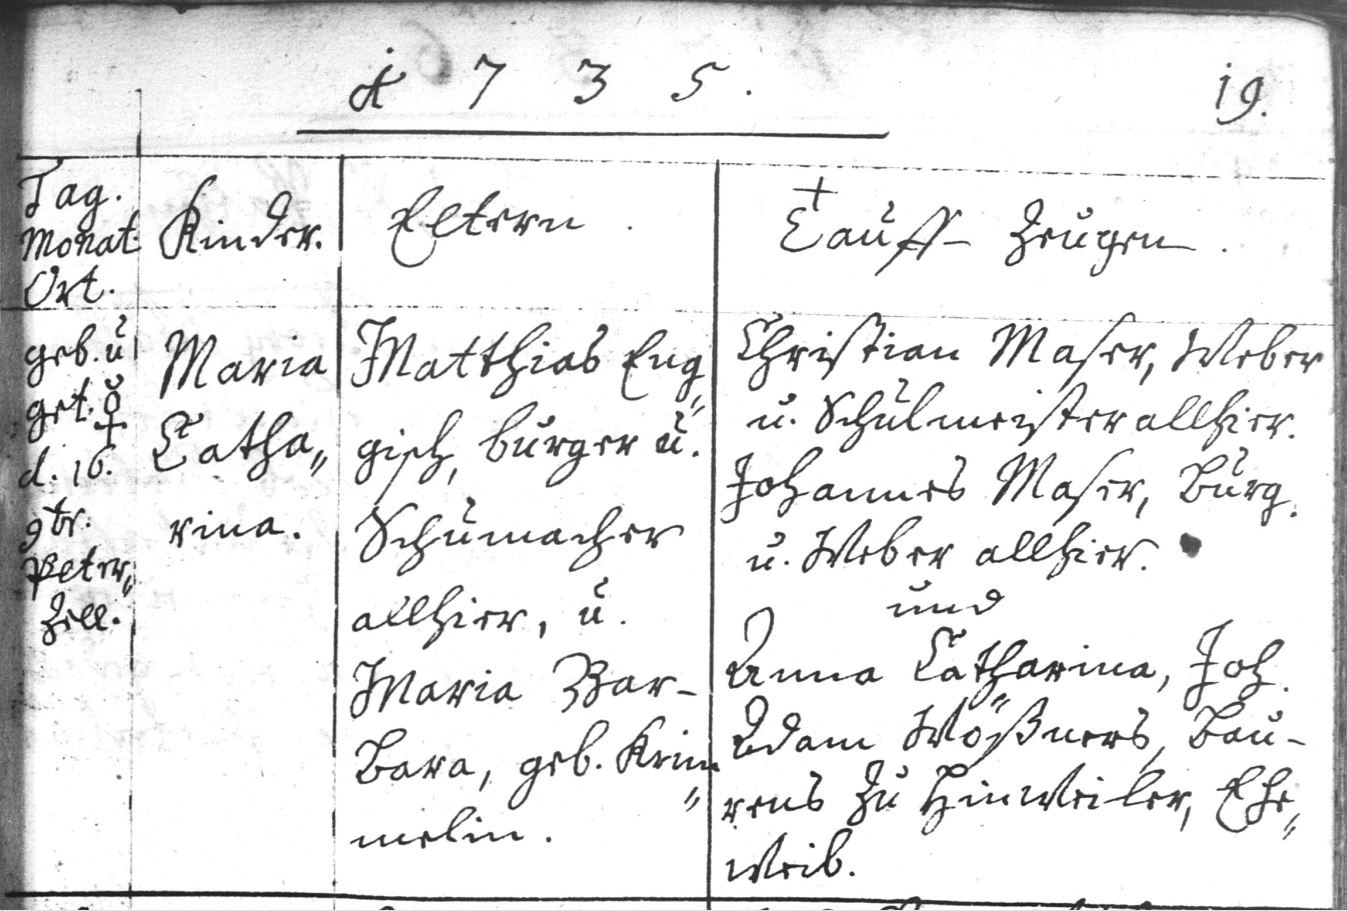 A 1735.
19.
Tag.
Monat
Ort.
Kinder.
Eltern.
Tauff-Zeugen.
geb. u.
get. ☿
d. 16.
9br.
Peter„
Zell.
Maria
Catha„
rina.
Matthias Eng„
gisch, burger u.
Schumacher
allhier, u.
Maria Bar-
bara, geb. Krim„
melin.
Christian Maser, Weber
u. Schulmeister allhier.
Johannes Maser, Burg.
u. Weber allhier.
und
Anna Catharina, Joh.
Adam Wößners, Bau-
rens zu Hinweiler, Ehe„
weib.